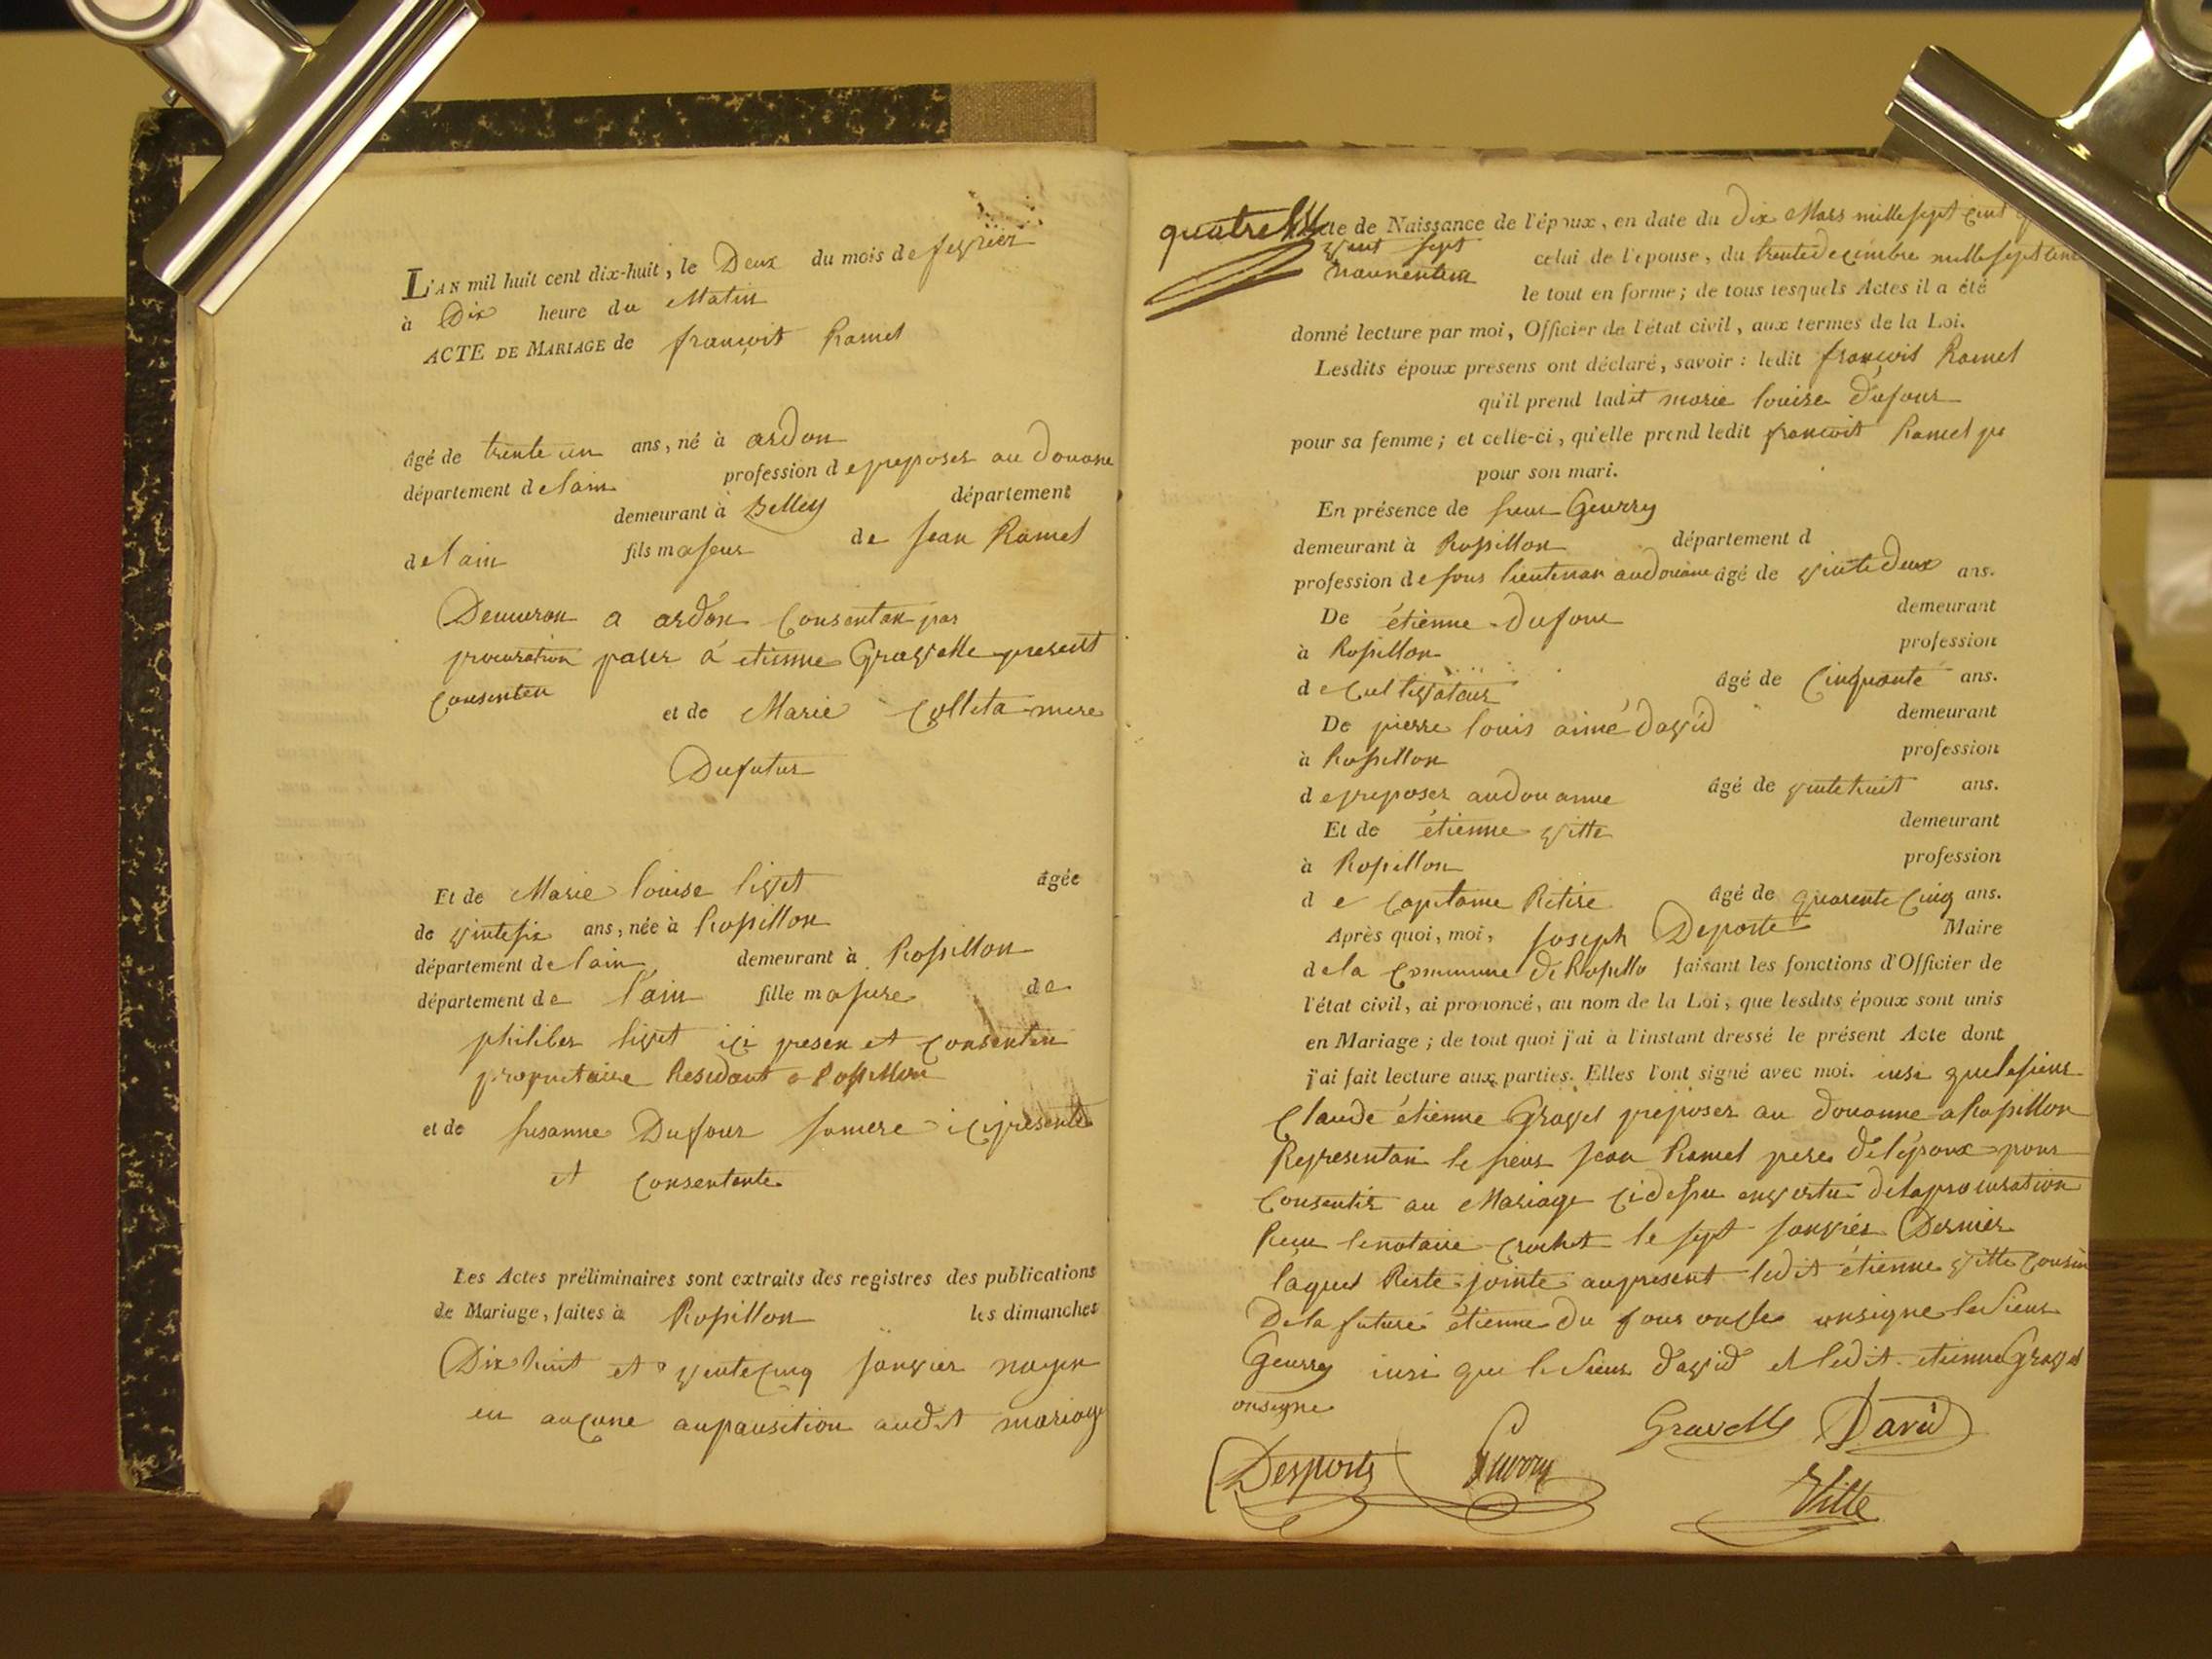 L'AN mil huit cent dix-huit, le Deux du mois de fevrier
à Dix heure du Matin
ACTE DE MARIAGE de françois Ramel
âgé de trente un ans, né à ardon
département de lain profession de preposer au Douane
demeurant à Belley département
de lain fils majeur de Jean Ramel
Demuran a ardon Consentan par
procuration paser á etienne Gravelle present
Consenten et de Marie Colleta mere
Dufutur
Et de Marie louise livet âgée
de vintesix ans, née à Rossillon
département de lain demeurant à Rossillon
département de l'ain fille majure de
philiber livet ici presen et consenten
propriétaire Residant a Rossillon
et de susanne Dufour samere ici presente
et Consentente
Les Actes préliminaires sont extraits des registres des publications
de Mariage, faites à Rossillon les dimanches
Dix huit et ventecinq janvier nayen
eu aucune aupausition audit mariage
quatre Acte de Naissance de l'époux, en date du Dix Mars mille sept cent
vent sept celui de l'epouse, du trente decimbre mille sept cent
le tout en forme; de tous lesquels Actes il a été
donné lecture par moi, Officier de l'état civil, aux termes de la Loi.
Lesdits époux présens ont déclaré, savoir: ledit françois Ramel
qu'il prend ladit marie louise dufour
pour sa femme; et celle-ci, qu'elle prend ledit francois Ramel
pour son mari.
En présence de sieur Geurry
demeurant à Rossillon département d
profession de sous lieutenan audouane âgé de vintedeux ans.
De étienne Dufour demeurant
à Rossillon profession
de Cultivateur âgé de Cinquante ans.
De pierre louis aimé david demeurant
à Rossillon profession
de preposer audouanne âgé de vintehuit ans.
Et de étienne vitte demeurant
à Rossillon profession
de Capitaine Retire âgé de quarente Cinq ans.
Après quoi, moi, Joseph Deporte Maire
de la Commune de Rossillo faisant les fonctions d'Officier de
l'état civil, ai prononcé, au nom de la Loi, que lesdits époux sont unis
en Mariage; de tout quoi j'ai à l'instant dressé le présent Acte dont
j'ai fait lecture aux parties. Elles l'ont signé avec moi. insi que lesieur
Claude étienne Gravel preposer au douanne a Rossillon
Representan le sieur Jean Ramel pere del'époux pour
Consentir au Mariage cidessu envertu delaprocuration
Recu lenotaire Crochet le sept janvier Dernier
laquel Reste jointe aupresent ledit étienne vitte Cousin
De la future étienne du four oncle onsigne le sieur
Geurry insi que le sieur david et ledit etienne Gravel
onsigne
Gravelle David
Desporte Guerry
Vitte